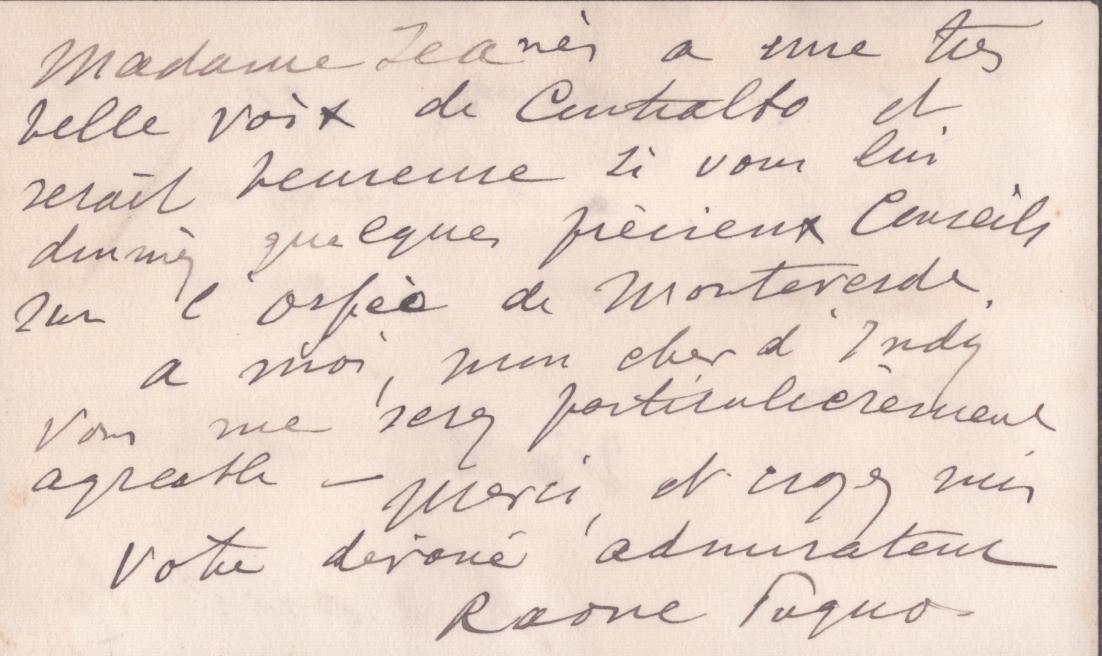 Madame Jeanès a une très
belle voix de Contralto et
serait heureuse si vous lui
donniez quelques précieux Conseils
sur l'Orfée de Monteverde.
a moi, mon cher d'Indy
vous me serez particulièrement
agréable – Merci, et croyez moi
votre dévoué admirateur
Raoul Pugno